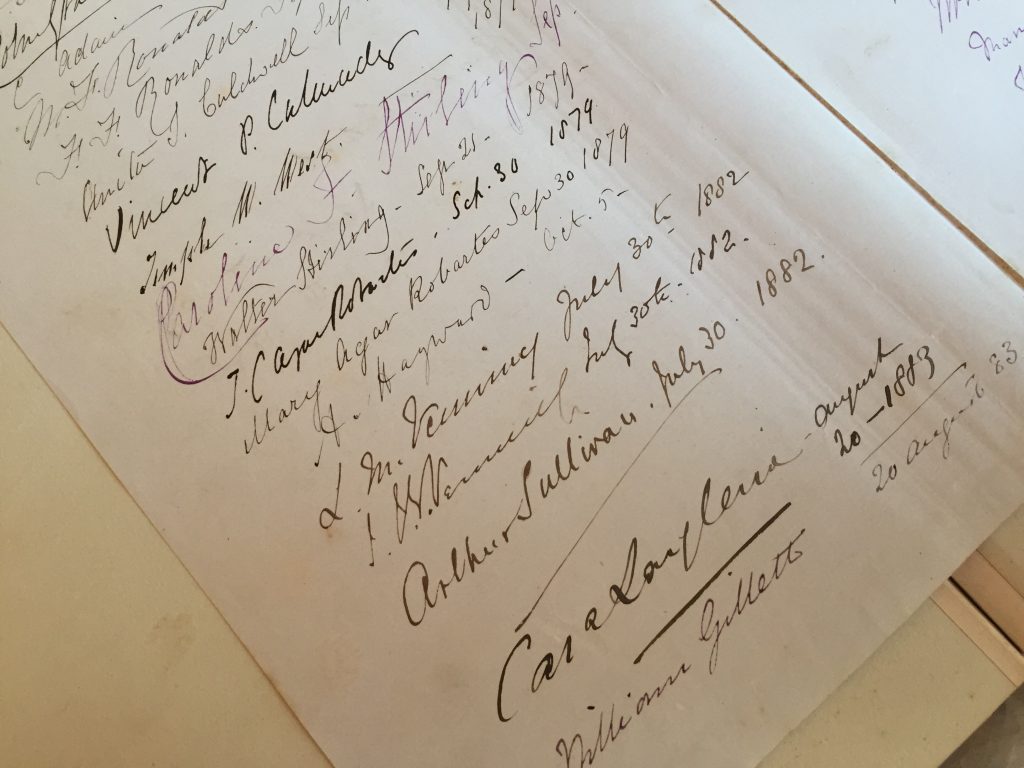 Adair
M. F. Ronalds
F. F. Ronalds. Sep
Anita S. Caldwell Sep 187
Vincent P. Calmady
Joseph W. West.
Caroline F Stirling Sep.
Walter Stirling - Sep. 21 - 1879 -
T. C. Agar Robartes .. Sep. 30 1879
Mary Agar Robartes Sep 30 1879
H. Hayward - Oct. 5 -
L. M. Venning July 30th 1882
J. W. Venning July 30th - 1882.
Arthur Sullivan. July 30. 1882.
Cara - August
20 - 1883
William Gillett 20 August 83